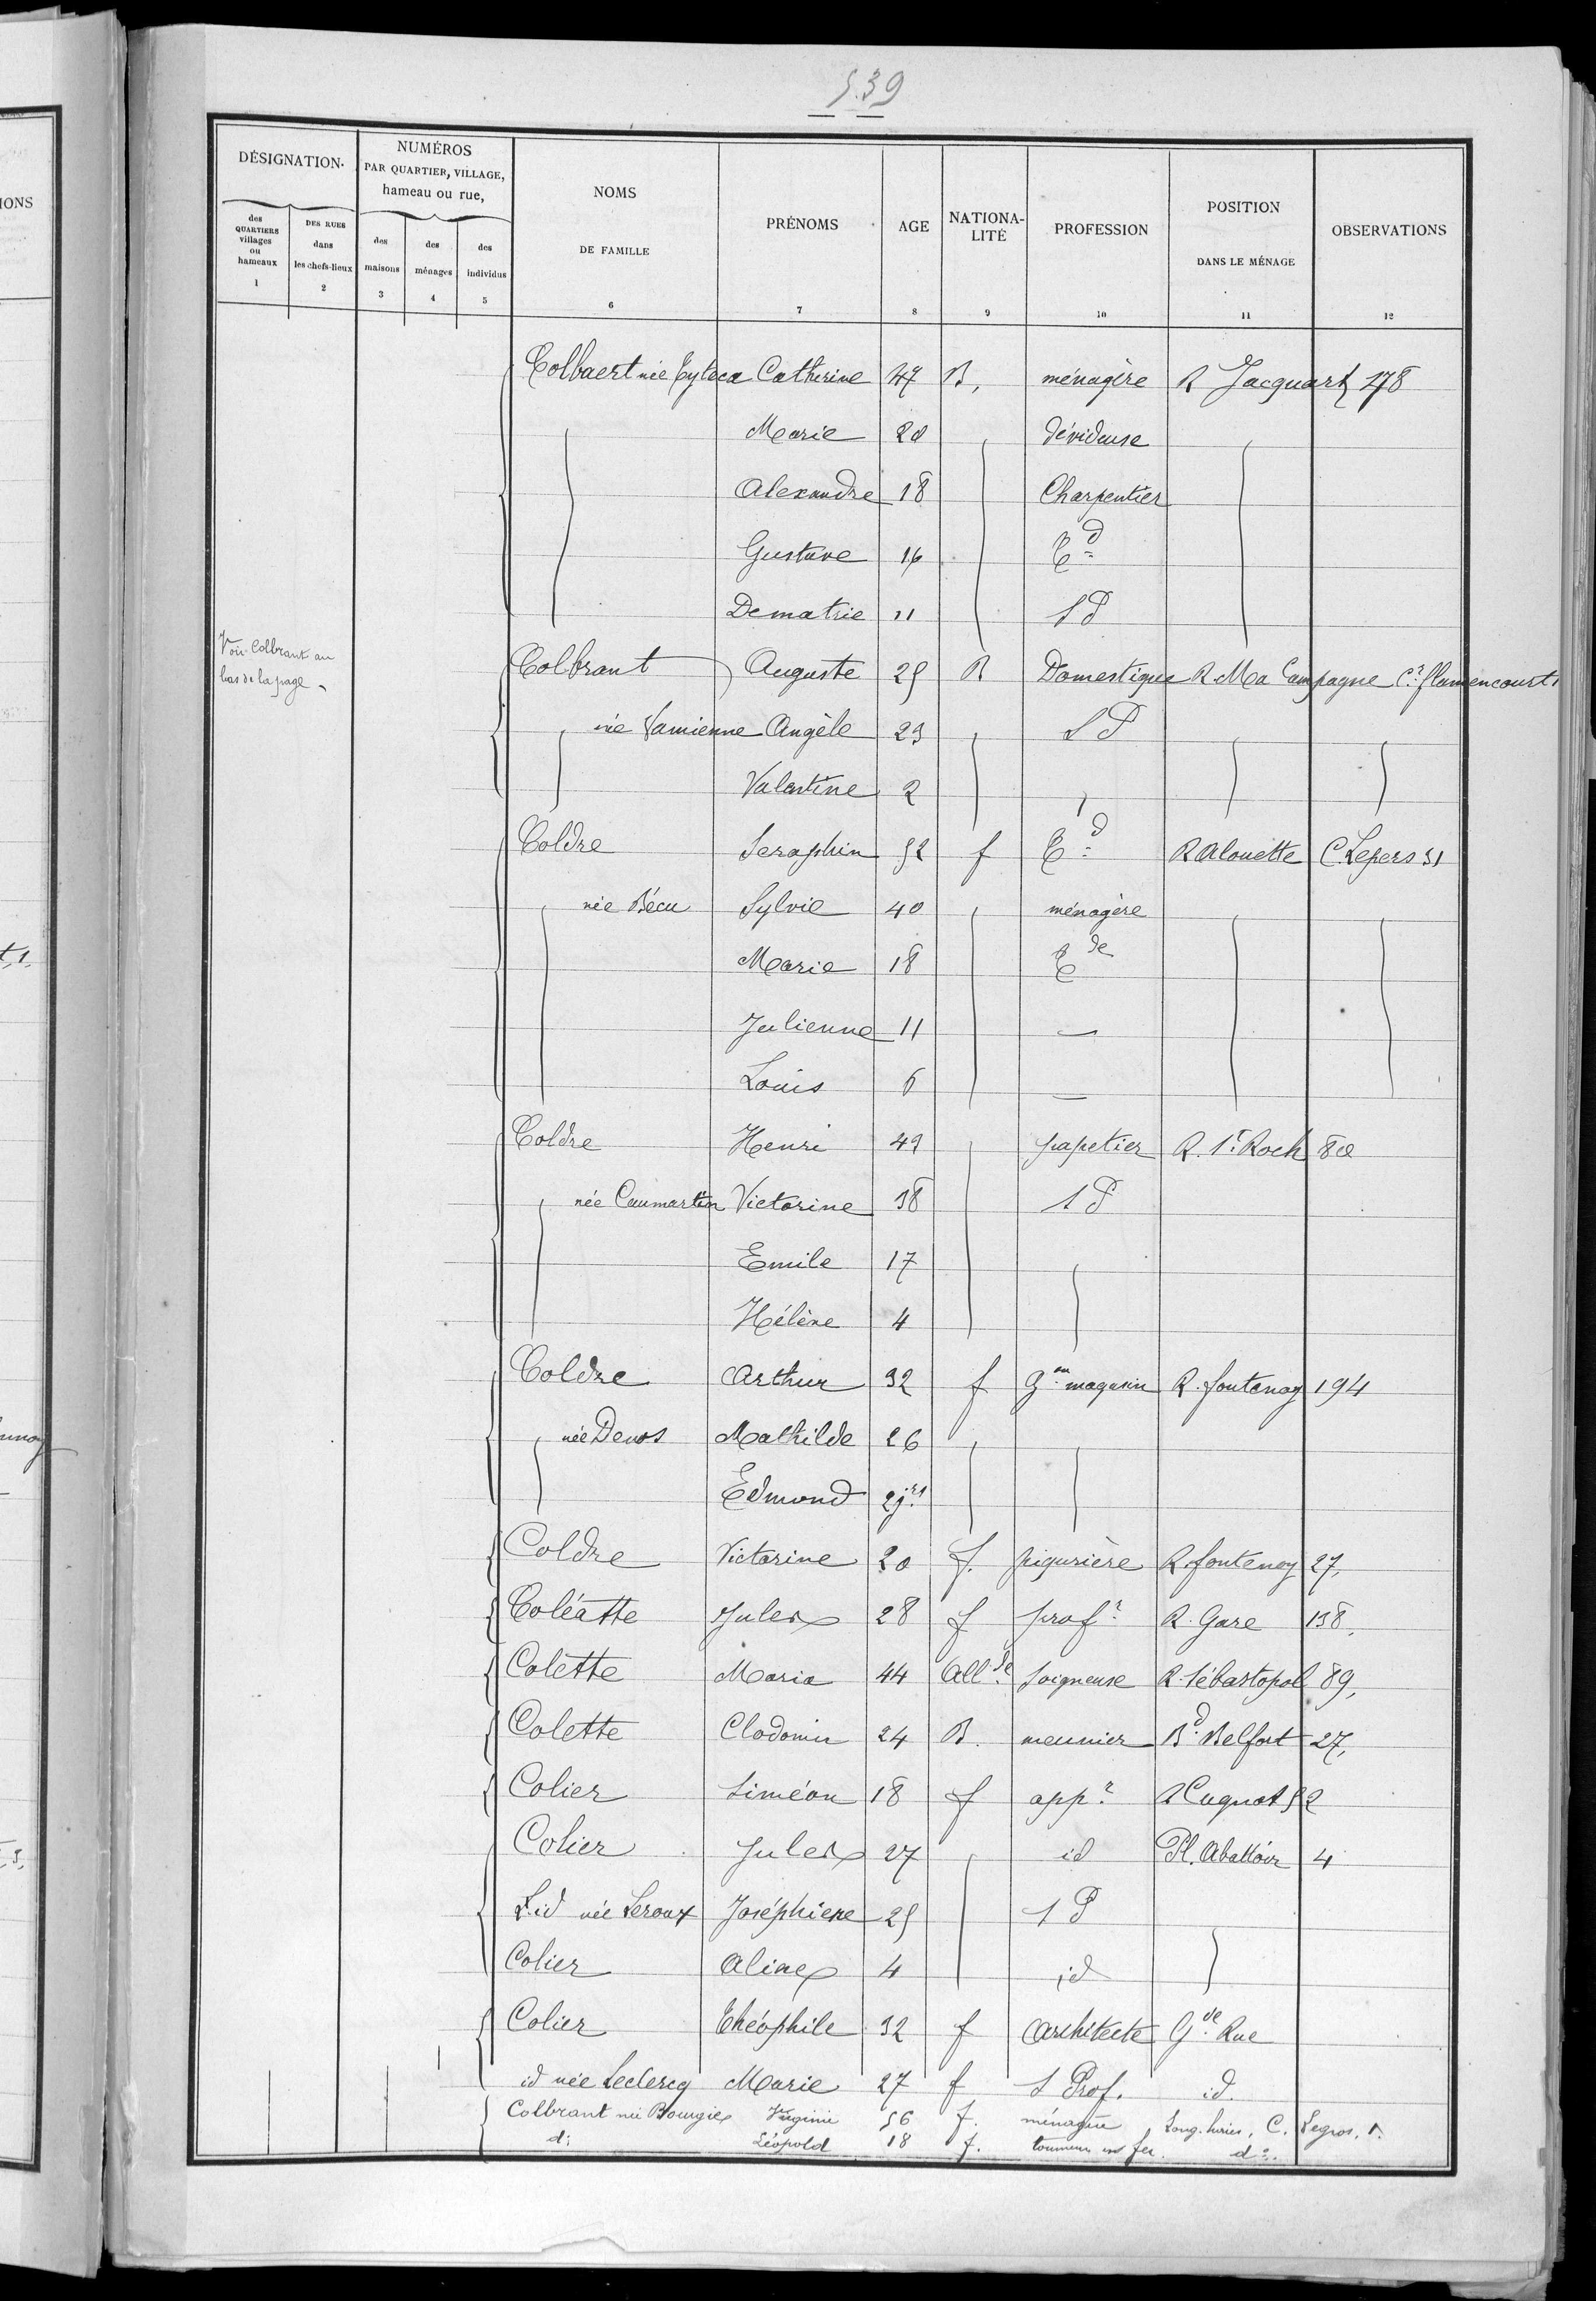 539
DÉSIGNATION
NUMÉROS PAR QUARTIER, VILLAGE, hameau ou rue,
NOMS DE FAMILLE
PRÉNOMS
AGE
NATIONA-LITÉ
PROFESSION
POSITION DANS LE MÉNAGE
OBSERVATIONS
des QUARTIERS villages ou hameaux
DES RUES dans les chefs-lieux
des maisons
des ménages
des individus
1 2 3 4 5 6 7 8 9 10 11 12
Colbaert née Catherine 47 B, ménagère R Jacquart 178
Marie 20 dévideuse
Alexandre 18 Charpentier
Gustave 16 Cd
Dematrie 11 SP
Voir Colbrant au
bas de la page
Colbrant Auguste 25 B Domestique R Ma Campagne Cr flamencourt 1
née Vamienne Angèle 23 SP
Valentine 2
Coldre Seraphin 52 f Cd R Alouette C. Lepers 31
née Bécu Sylvie 40 ménagère
Marie 18 Cde
Julienne 11 —
Louis 6 —
Coldre Henri 49 papetier R. St Roch 80
née Caumartin Victorine 38 SP
Emile 17
Hélène 4
Coldre Arthur 32 f Gon magasin R. fontenoy 194
née Devos Mathilde 26
Edmond 2jrs
Coldre Victorine 30 f. piqurière R. fontenoy 27,
Coléatte Jules 28 f profr R. Gare 138,
Colette Maria 44 Allde soigneuse R. Sébastopol 89,
Colette Clodomir 24 B. meunier Bd Belfort 27,
Colier Siméon 18 f appr R Cugnot 52
Colier Jules 27 id Pl. Abattoir 4
id née Leroux Joséphine 25 SP
Colier Aline 4 id
Colier Théophile 32 f Architecte Gde Rue
id née Leclercq Marie 27 f S Prof. id.
Colbrant née Bourgie Virginie 56 f. ménagère Long. haies, C. Legros, 1.
do Léopold 18 f. tourneur en fer. do.